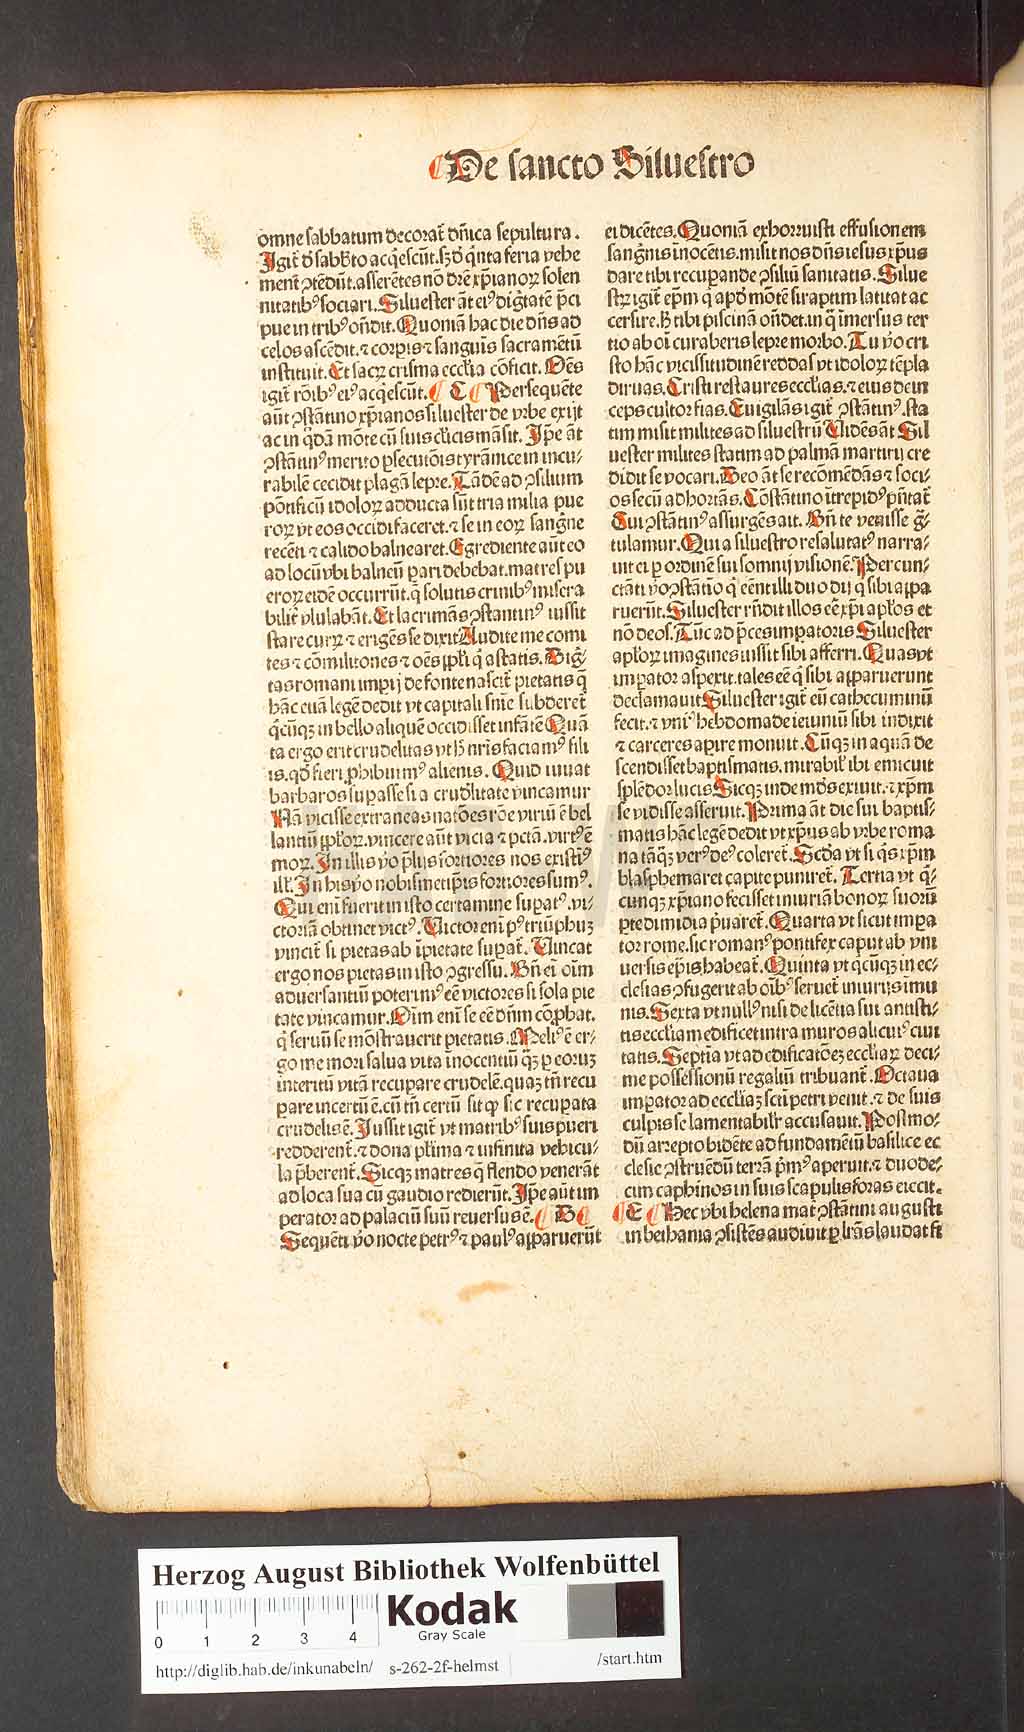 De sancto Siluestro
omne sabbatum decorat̄ dn̄ica sepultura.
Igit̄ d̄ sabb̄to acq̄escūt. Sꝫ d̄ q̄nta feria vehe
ment̄ ↄtēdūt. asserētes nō dr̄e xp̄ianoꝝ solen
nitatibꝰ sociari. Siluester āt eiꝰ diḡtatē p̄ci
pue in tribꝰ on̄dit. Quoniā hac die dn̄s ad
celos ascēdit. ⁊ corp̄is ⁊ sanguīs sacramētū
instituit. Et sacꝝ crisma eccl̄ia cōficit. Oēs
igit̄ rōibꝰ eiꝰ acq̄escūt. C Persequēte
aūt ↄstātino xp̄ianos siluester de vrbe exijt
ac in q̄dā mōte cū suis cl̄icis māsit. Ip̄e āt
ↄstātinꝰ merito ꝑsecutōis tyrānice in incu-
rabilē cecidit plagā lepre. Tādē ad ↄsilium
pōtificū idoloꝝ adducta sūt tria milia pue
roꝝ vt eos occidi faceret. ⁊ se in eoꝝ sanḡne
recēti ⁊ calido balnearet. Egrediente aūt eo
ad locū vbi balneū parī debebat. matres pu
eroꝝ eidē occurrūt. q̄ solutis crinibꝰ misera
bilit̄ vlulabāt. Et lacrimās ↄstantinꝰ iussit
stare curꝝ ⁊ erigēs se dixit Audite me comi
tes ⁊ cōmilitones ⁊ oēs pp̄li q̄ astatis. Diḡ-
tas romani imp̄ij de fonte nascit̄ pietatis q̄
hāc euā legē dedit vt capitali sn̄ie subderet̄
q̄cūqꝫ in bello aliquē occidisset infātē Quā
ta ergo erit crudelitas vt hꝫ nr̄is faciamꝰ fili
is. qd̄ fieri ꝓhibuimꝰ alienis. Quid iuuat
barbaros suꝑasse si a crud̄litate vincamur
Nā vicisse extraneas natōes rōe viriū ē bel
lantiū pp̄loꝝ. vincere aūt vicia ⁊ pctā. virtꝰ ē
moꝝ. In illis v̄o p̄lijs fortiores nos existīꝰ
ill̄. In his v̄o nobismetip̄is fortiores sumꝰ.
Qui eni fuerit in isto certamine suꝑatꝰ. vi-
ctoriā obtinet victꝰ. Victor eni pꝰ triūphuꝫ
vincit̄ si pietas ab īpietate suꝑat̄. Vincat
ergo nos pietas in isto ↄgressu. Bn̄ ei oīm
aduersantiū poterimꝰ eē victores si sola pie
tate vincamur. Oim eni se eē dn̄m cōꝓbat.
q̄ seruū se mōstrauerit pietatis. Meliꝰ ē er-
go me mori salua vita inocentiū q̄ꝫ ꝑ eoruꝫ
interitū vitā recuꝑare crudelē. quaꝫ tn̄ recu
ꝑare incertū ē. cū tn̄ certū sit qꝙ sic recuꝑata
crudelis ē. Jussit igit̄ vt matribꝰ suis pueri
redderent̄. ⁊ dona pl̄ima ⁊ infinita vehicu-
la p̄berent̄. Sicqꝫ matres q̄ flendo venerāt
ad loca sua cū gaudio redierūt. Ip̄e aūt im
perator ad palaciū suū reuersus ē. D
Sequēti v̄o nocte petrꝰ ⁊ paulꝰ apparuerūt
ei dicētes. Quoniā exhorruisti effusionem
sanḡnis inocētis. misit nos dn̄s iesus xp̄us
dare tibi recuꝑande ↄsiliū sanitatis. Silue
stꝝ igit̄ ep̄m q̄ apd̄ mōtē siraptim latitat ac
cersire. Hꝫ tibi piscinā on̄det. in q̄ īmersus ter
tio ab oī curaberis lepre morbo. Tu v̄o cri
sto hāc vicissitudinē reddas vt idoloꝝ tēpla
diruas. Cristi restaures eccl̄ias. ⁊ eius dein
ceps cultor fias. Euigilās igit̄ ↄstātinꝰ. sta
tim misit milites ad siluestrū Uidēs āt Sil
uester milites statim ad palmā martirij cre
didit se vocari. Deo āt se recōmēdās ⁊ soci-
os secū adhortās. Cōstātino itrepidꝰ pn̄tat̄
Cui ↄstātinꝰ assurgēs ait. Bn̄ te venisse ḡ-
tulamur. Qui a siluestro resalutatꝰ narra-
uit ei ꝑ ordinē sui somnij visionē. Percun-
ctāti v̄o ↄstātio q̄ eēnt illi duo dij q̄ sibi appa
ruerūt. Siluester rn̄dit illos eē xp̄i apl̄os et
nō deos. Tūc ad p̄ces imꝑatoris Siluester
apl̄oꝝ imagines iussit sibi afferri. Quas vt
imꝑator aspexit. tales eē q̄ sibi apparuerunt
declamauit Siluester igit̄ eū cathecuminū
fecit. ⁊ vniꝰ hebdomade ieiuniū sibi indixit
⁊ carceres aꝑire monuit. Cūqꝫ in aquā de
scendisset baptismatis. mirabil̄ ibi emicuit
splēdor lucis Sicqꝫ inde mūdꝰ exiuit. ⁊ xp̄m
se vidisse asseruit. Prima āt die sui baptis-
matis hāc legē dedit vt xp̄us ab vrbe roma
na tāqꝫ verꝰ deꝰ coleret̄. Scd̄a vt si q̄s xp̄m
blasphemaret capite puniret̄. Tertia vt q̄-
cunqꝫ xp̄iano fecisset iniuriā bonoꝝ suorū
ꝑte dimidia p̄uaret̄. Quarta vt sicut imꝑa
tor rome. sic romanꝰ pontifex caput ab vni
uersis ep̄is habeat̄. Quinta vt q̄cūqꝫ in ec-
clesias ↄfugerit ab oībꝰ seruet̄ iniurijs īmu
nis. Sexta vt nullꝰ nisi de licētia sui antisti-
tis eccl̄iam edificet intra muros alicuiꝰ ciui
tatis. Septīa vt ad edificatōeꝫ eccl̄iaꝝ deci-
me possessionū regaliū tribuant̄. Octaua
imꝑator ad eccl̄iaꝫ scti petri venit. ⁊ de suis
culpis se lamentabilit̄ accusauit. Postmo-
dū arrepto bidēte ad fundamētū basilice ec
clesie ↄstruēdū terrā p̄mꝰ aperuit. ⁊ duode-
cim caphinos in suis scapulis foras eiecit.
E Hec vbi helena mat̄ ↄstātini augusti
in bethania ↄsistēs audiuit ꝑ lr̄as laudat fi
Herzog August Bibliothek Wolfenbüttel
0 1 2 3 4
Kodak
Gray Scale
http://diglib.hab.de/inkunabeln/ s-262-2f-helmst /start.htm